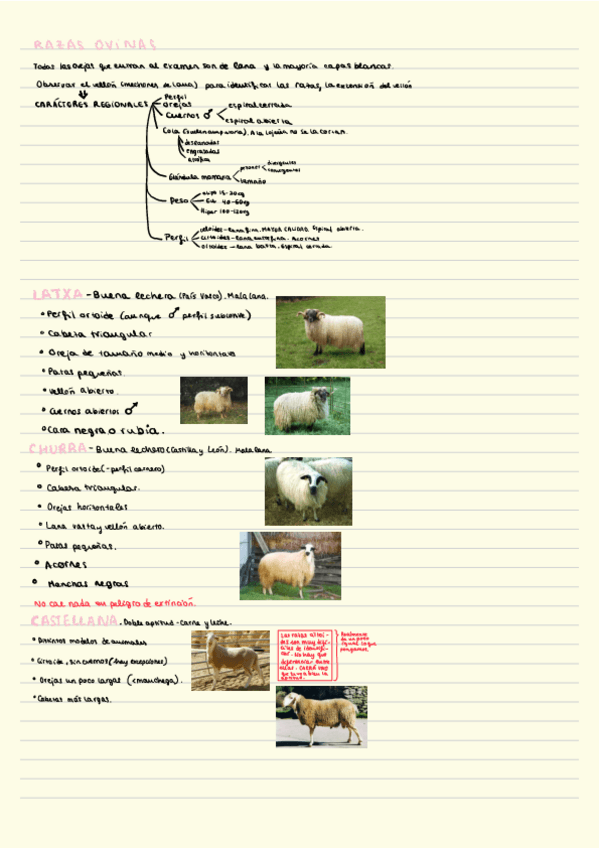 RAZAS OVINAS
Todas las ovejas que entran al examen son de lana y la mayoría capas blancas.
Observar el vellón (mechones de lana) para identificar las razas, la extensión del vellón
CARÁCTERES REGIONALES
Perfil
Orejas
Cuernos ♂
espiral cerrada
espiral abierta
Cola
A la lojeña no se la cortan.
desganadas
engrasadas
Glándula mamaria
pezones
divergentes
convergentes
tamaño
Peso
elipo 15-30kg
Eu 40-60kg
Hiper 100-120kg
Perfil
celoides-lana fina. MAYOR CALIDAD. Espiral abierta.
cirtoides-lana entrefina. Acornes
ortoides-lana basta. Espiral cerrada.
LATXA - Buena lechera (País Vasco). Mala lana.
• Perfil ortoide (aunque ♂ perfil subconvexo)
• Cabeza triangular
• Oreja de tamaño medio y horizontales
• Patas pequeñas.
• Vellón abierto.
• Cuernos abiertos ♂
• Cara negra o rubia.
CHURRA - Buena lechera (Castilla y León). Mala lana
• Perfil ortoide (-perfil carnero)
• Cabeza triangular.
• Orejas horizontales
• Lana basta y vellón abierto.
• Patas pequeñas.
• Acornes
• Manchas negras
No cae nada en peligro de extinción.
CASTELLANA. Doble aptitud - carne y leche.
• Distintos modelos de animales
• Cirtoide, sin cuernos (hay excepciones)
• Orejas un poco largas (<manchega).
• Cabezas más largas.
Las razas
son muy difí-
ciles de identifi-
car. No hay que
diferenciar